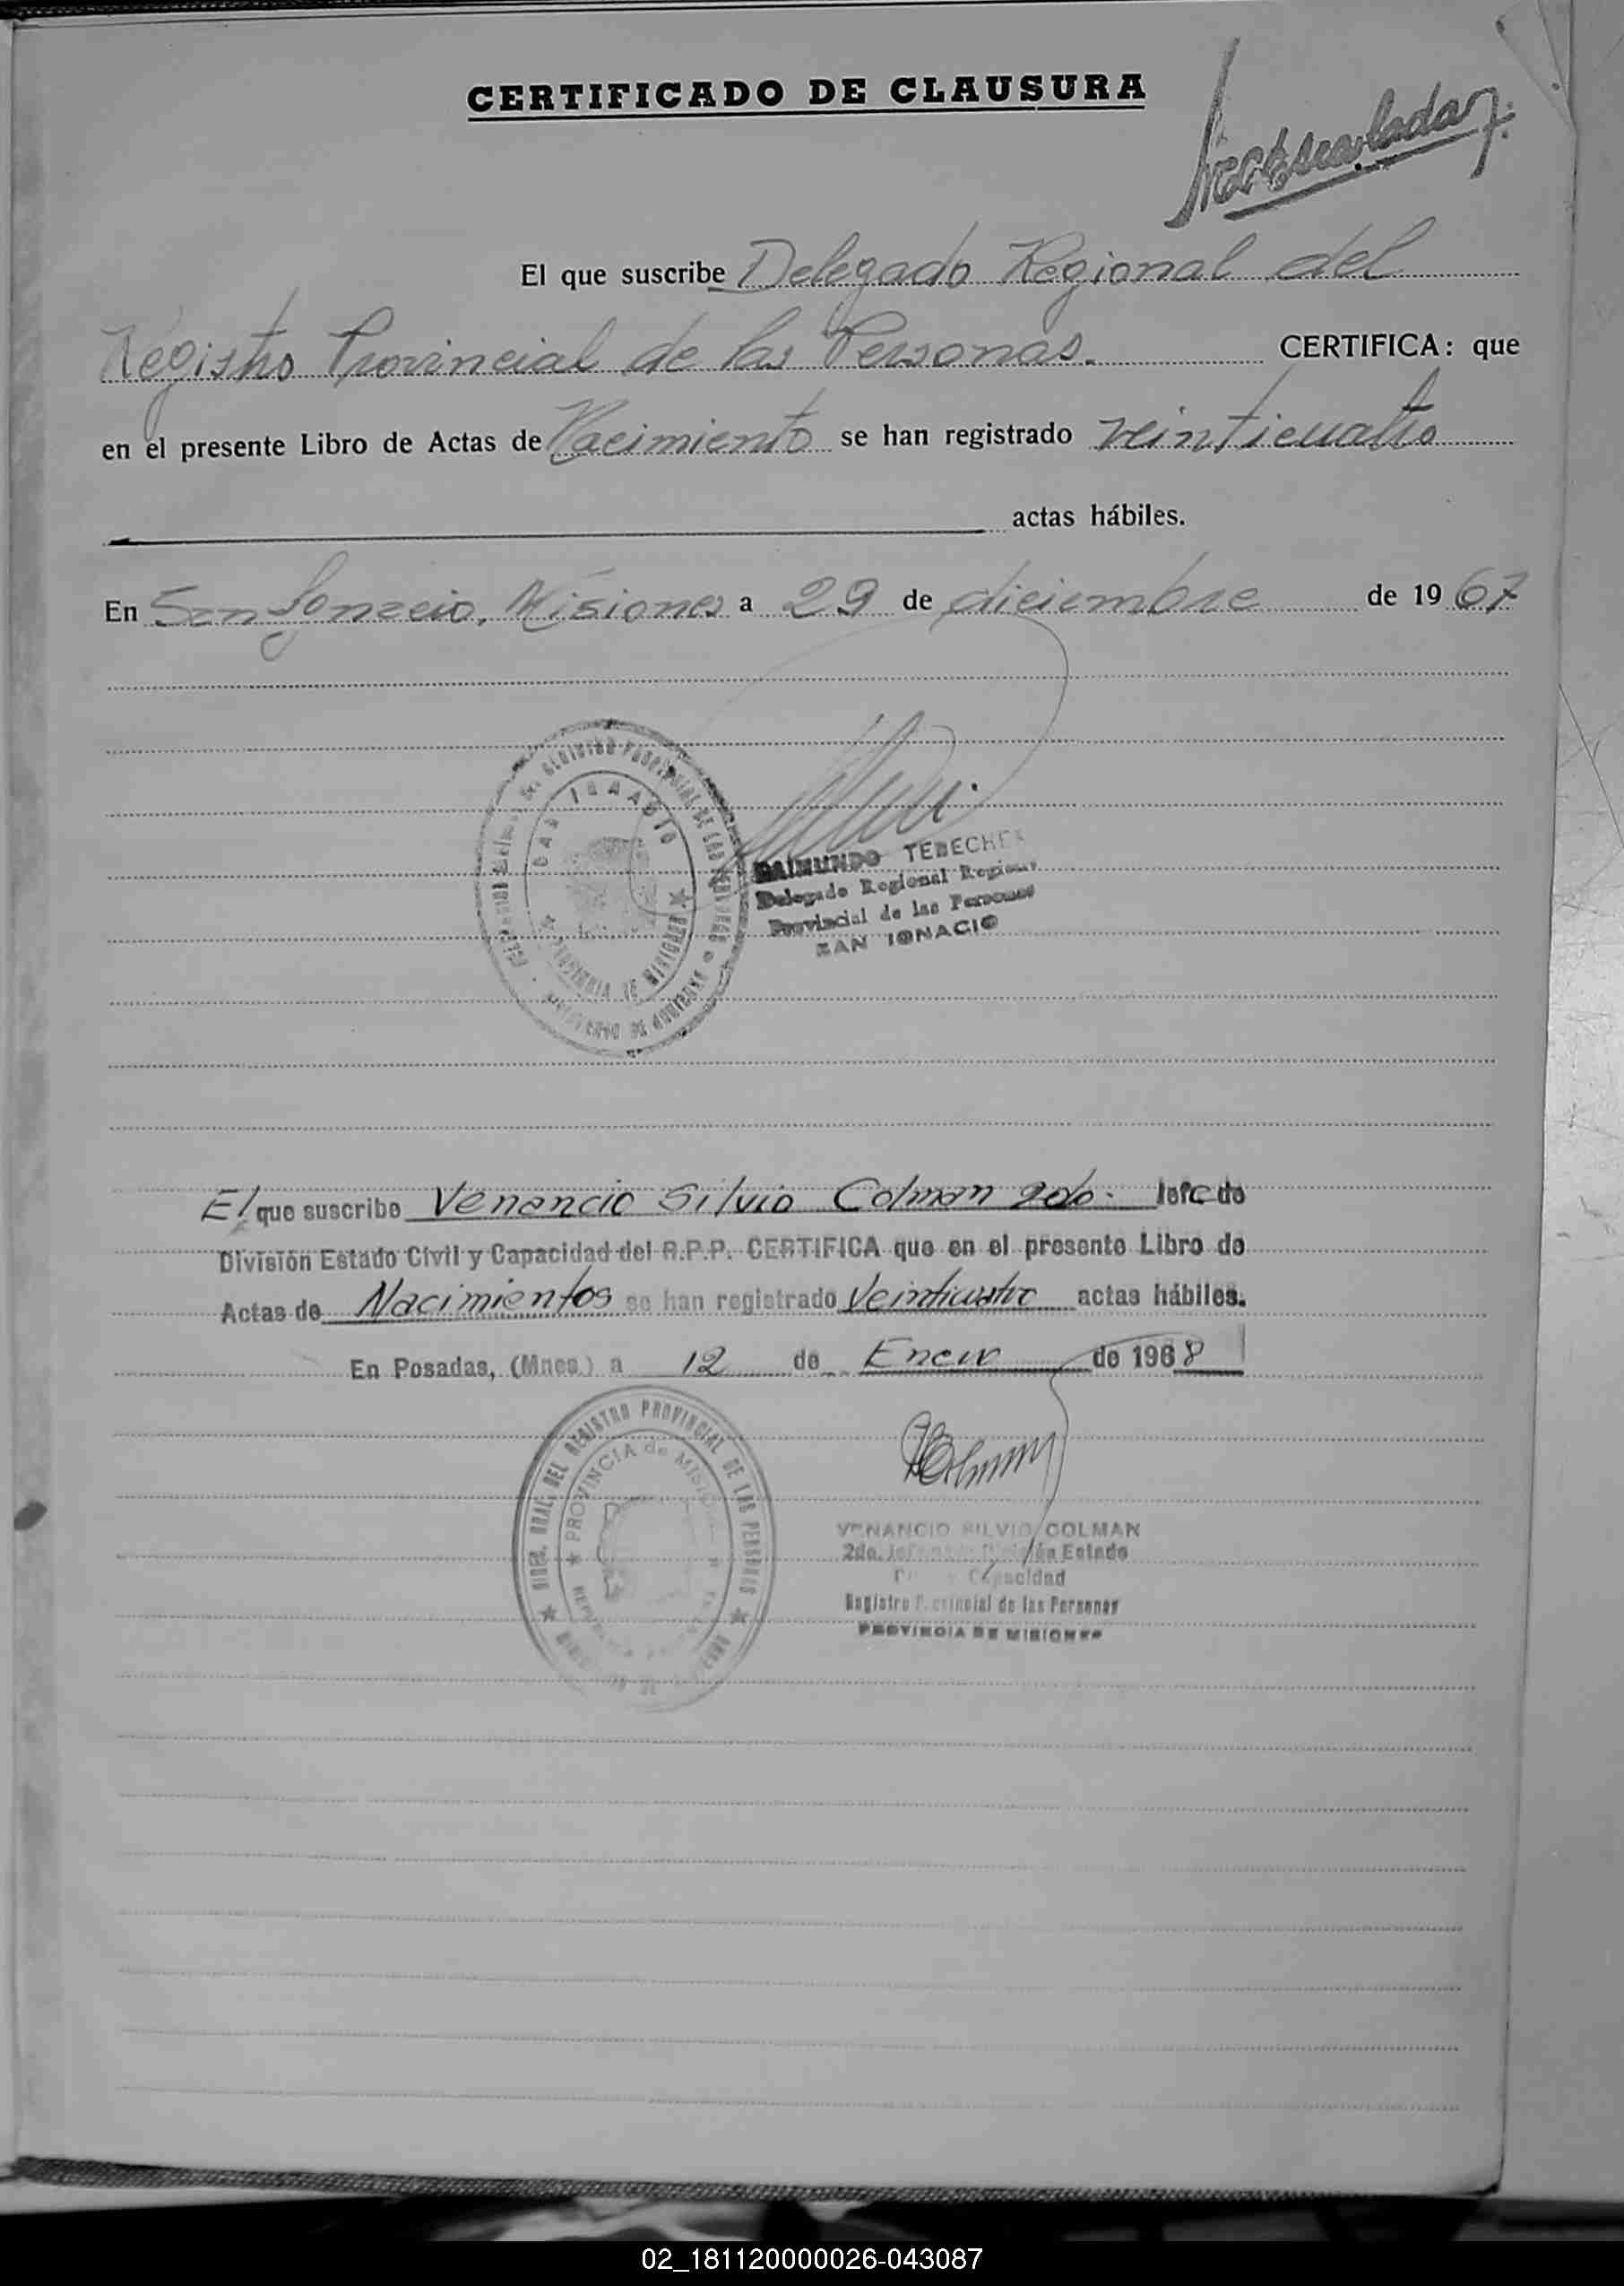 CERTIFICADO DE CLAUSURA
El que suscribe Delegado Regional del
Registro Provincial de las Personas. CERTIFICA: que
en el presente Libro de Actas de Nacimiento se han registrado veinticuatro
actas hábiles.
En San Ignacio, Misiones a 29 de diciembre de 1967
SAN IGNACIO
RAIMUNDO TEBECHER
Delegado Regional Registro
Provincial de las Personas
SAN IGNACIO
El que suscribe Venancio Silvio Colman 2do. Jefe de
División Estado Civil y Capacidad del R.P.P. CERTIFICA que en el presente Libro de
Actas de Nacimientos se han registrado Veinticuatro actas hábiles.
En Posadas, (Mnes.) a 12 de Enero de 1968
DIREC. GRAL. DEL REGISTRO PROVINCIAL DE LAS PERSONAS
PROVINCIA de MISIONES
VENANCIO SILVIO COLMAN
2do. Jefe División Estado
Capacidad
Registro Provincial de las Personas
PROVINCIA DE MISIONES
02_181120000026-043087